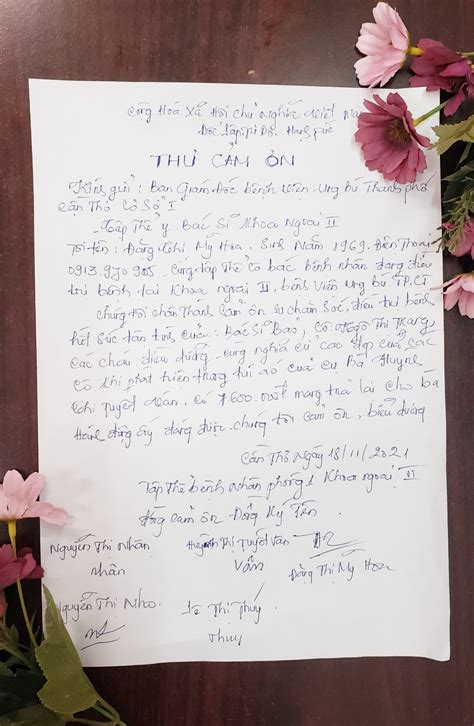 Cộng Hoà Xã Hội chủ Nghĩa Việt Nam
Độc Lập Tự Do. Hạnh Phúc
THƯ CẢM ƠN
Kính gửi: Ban Giám Đốc bệnh viện Ung bú Thành phố
Cần Thơ Cơ Sở I
Tập Thể y. Bác Sĩ Khoa Ngoại II
Tôi tên: Đặng Thị Mỹ Hoa. Sinh Năm 1969. Điện Thoại
0913.970905. Cùng tập Thể Cô bác bệnh nhân đang điều
trị bệnh tại Khoa ngoại II, bệnh Viện Ung bú TP.CT
chúng tôi chân Thành Cảm ơn sự chăm Sóc, điều trị bệnh
hết Sức tận tình của: Bác Sĩ Bảo, Cô Ngô Thị Trang,
các cháu điều dưỡng - cùng nghĩa cử cao đẹp của các
Cô khi phát hiện trong túi áo của cụ Bà Huỳnh
Thị Tuyết Vân, có 7.600. mang trả lại cho bà
Hành động ấy đáng được chúng tôi cảm ơn, biểu dương
Cần Thơ Ngày 18/11/2021
Tập Thể bệnh Nhân phòng 1 Khoa ngoại II
đồng Cảm ơn Đồng Ký Tên
Nguyễn Thị Nhân Huỳnh Thị Tuyết Vân
nhân Vân Đặng Thị Mỹ Hoa
Nguyễn Thị Nho. Lê Thị Thúy
Thuy